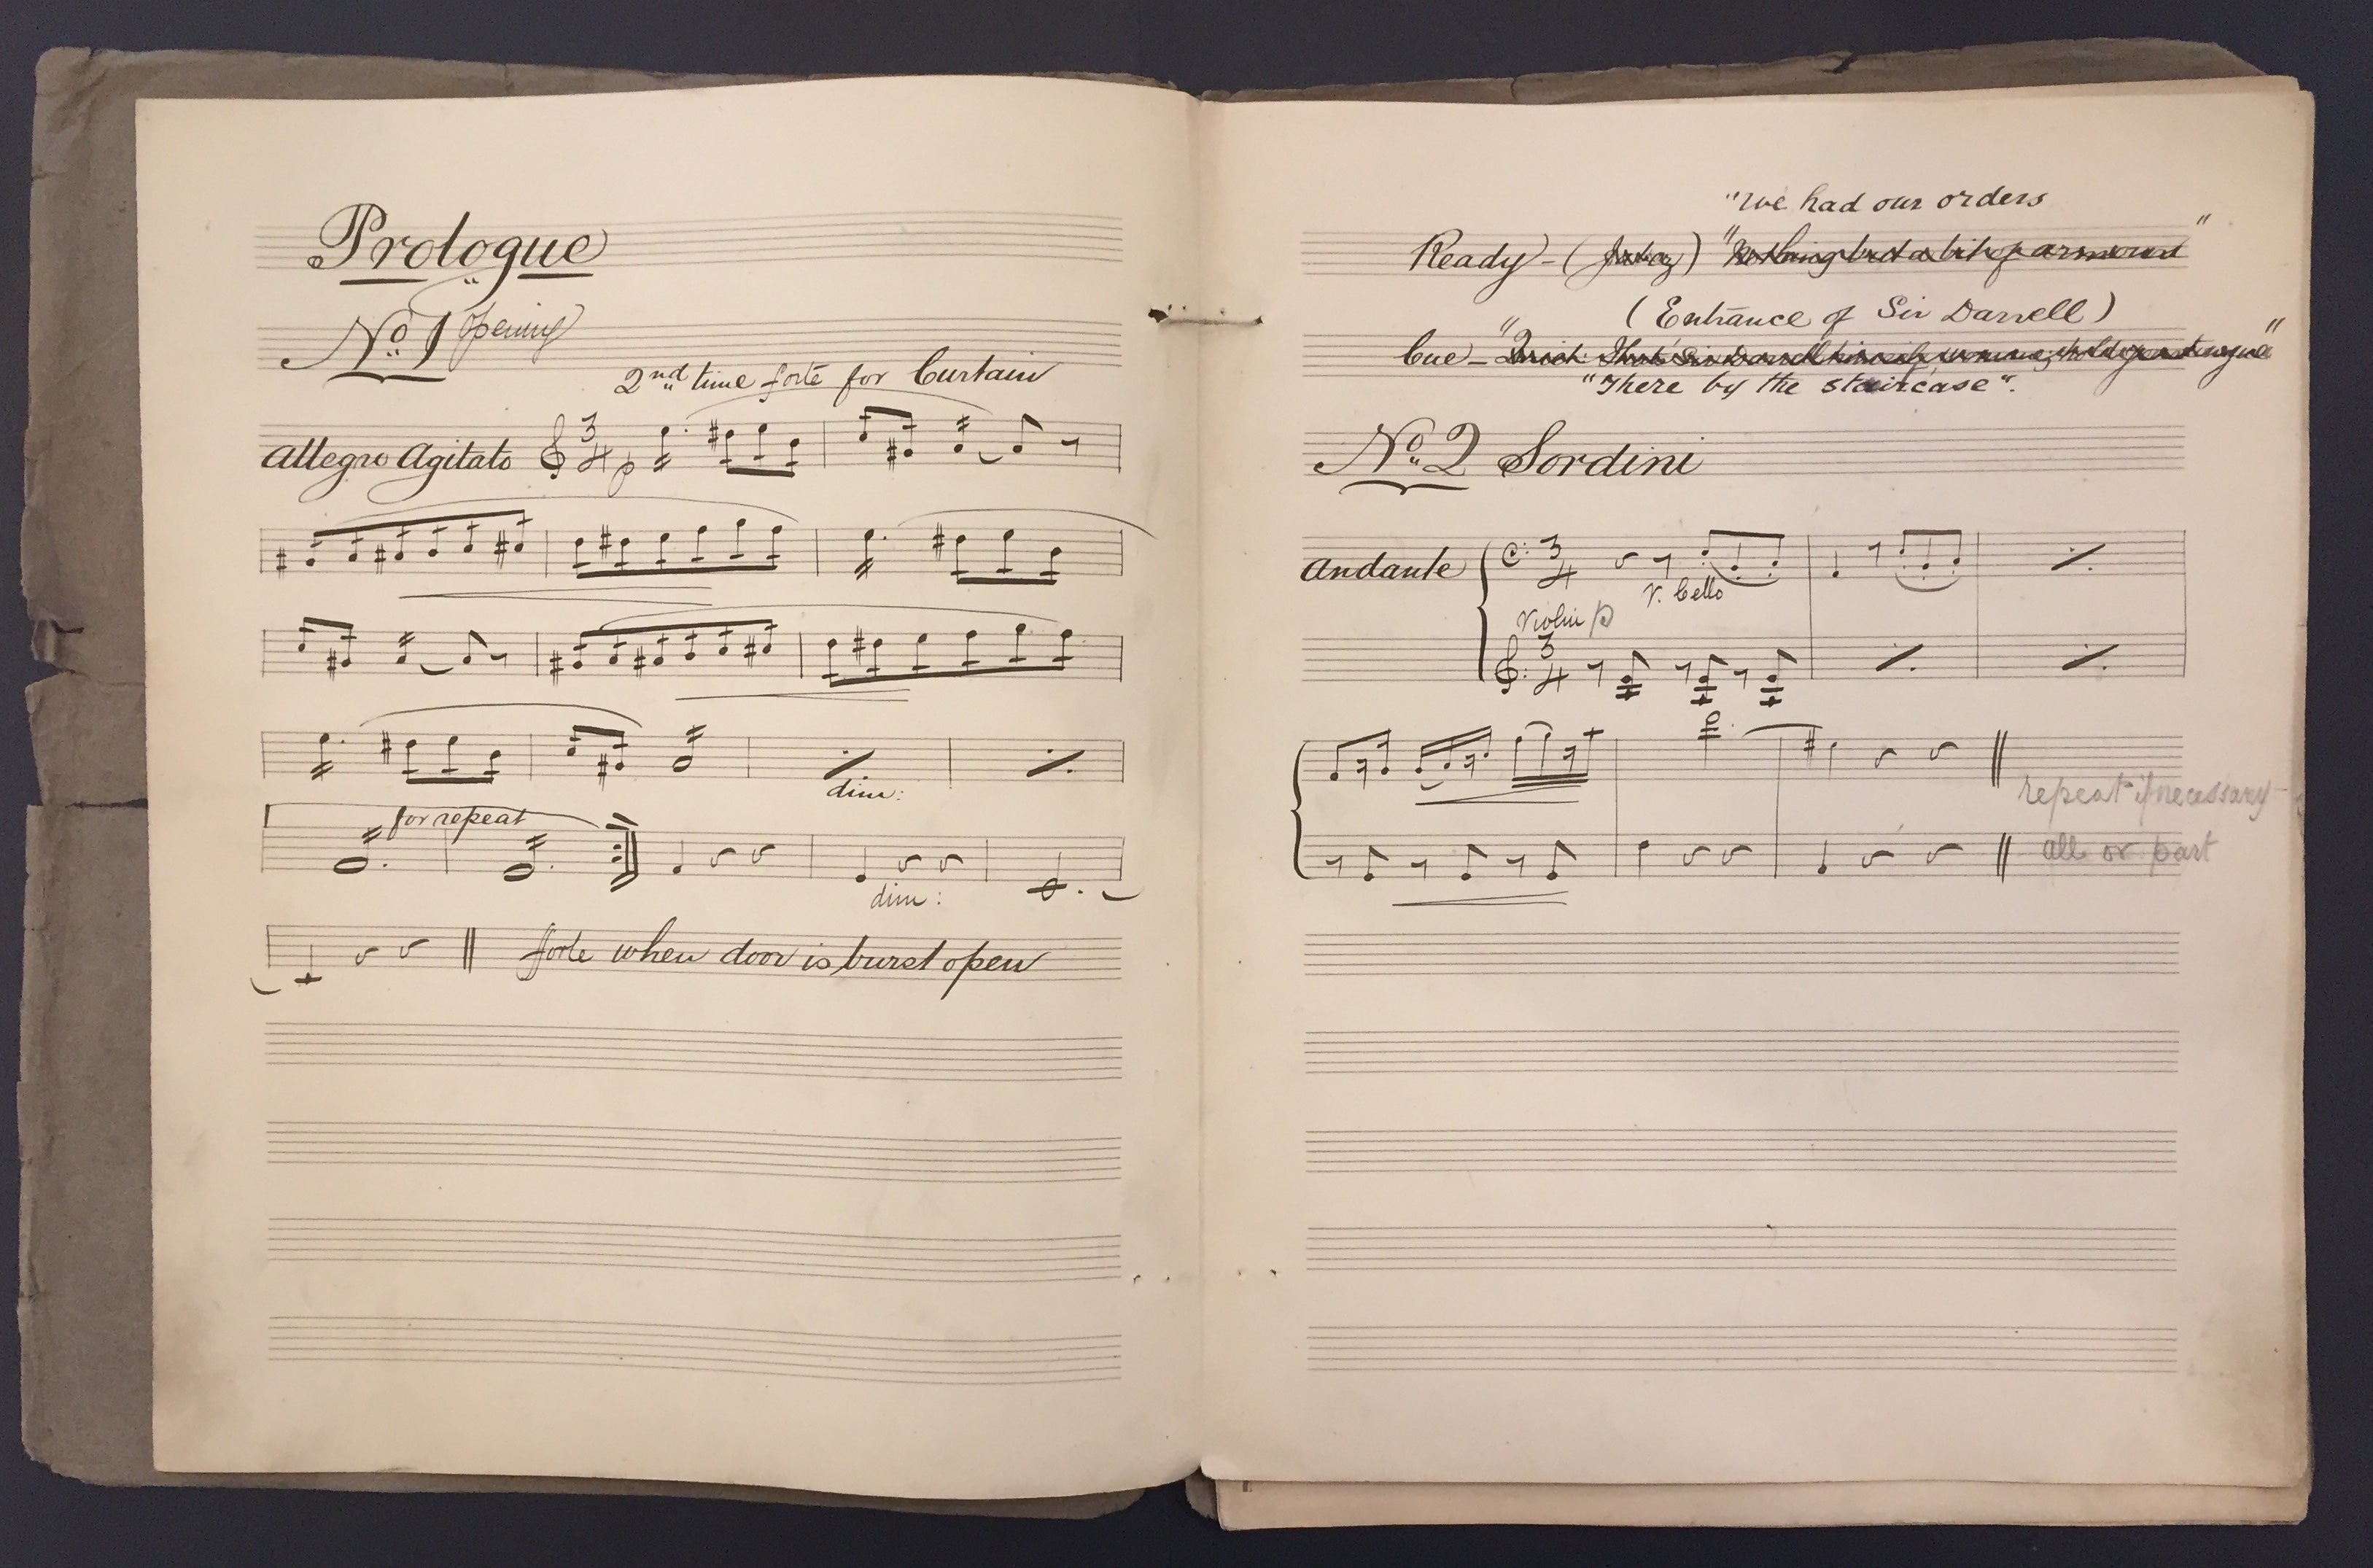 Prologue
No. 1 Opening
2nd time forte for Curtain
Allegro Agitato 3/4 p
dim:
for repeat
dim:
forte when door is burst open
"We had our orders"
Ready - ( ) "Nothing but a bit of armour
(Entrance of Sir Darrell)
Cue - " Sir Darrell himself "
"There by the staircase".
No. 2 Sordini
Andante 3/4
V. Cello
Violin p
3/4
repeat if necessary
all or part